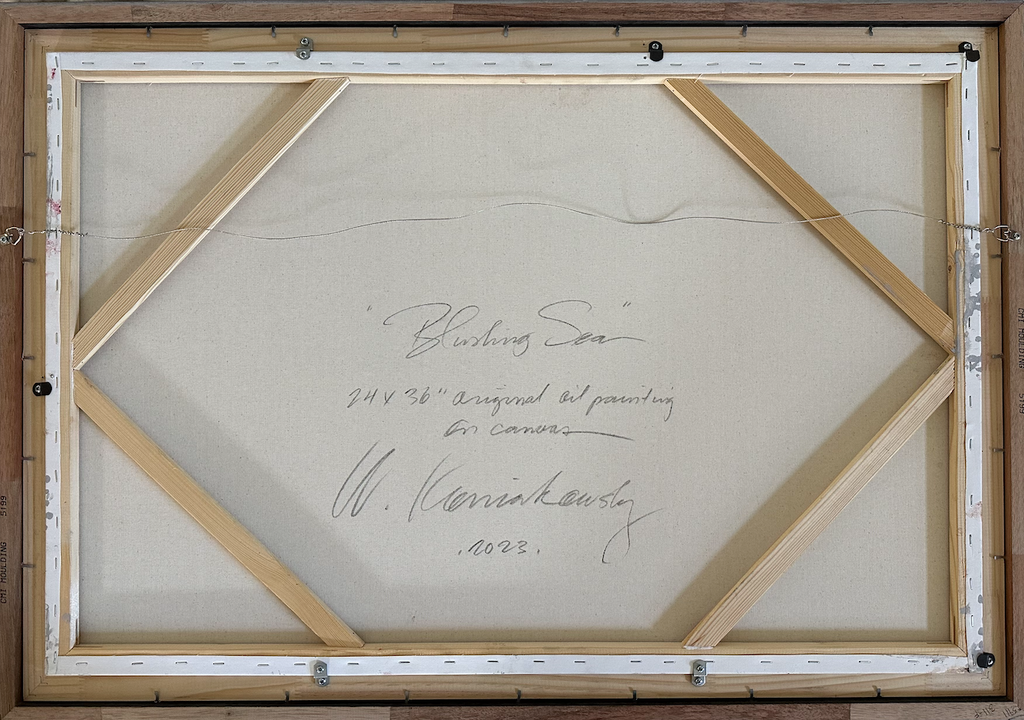 "Blushing Sea"
24 x 36" original oil painting
on canvas
W. Komiakowsky
.2023.
CMI MOULDING 5199
CMI MOULDING 5199